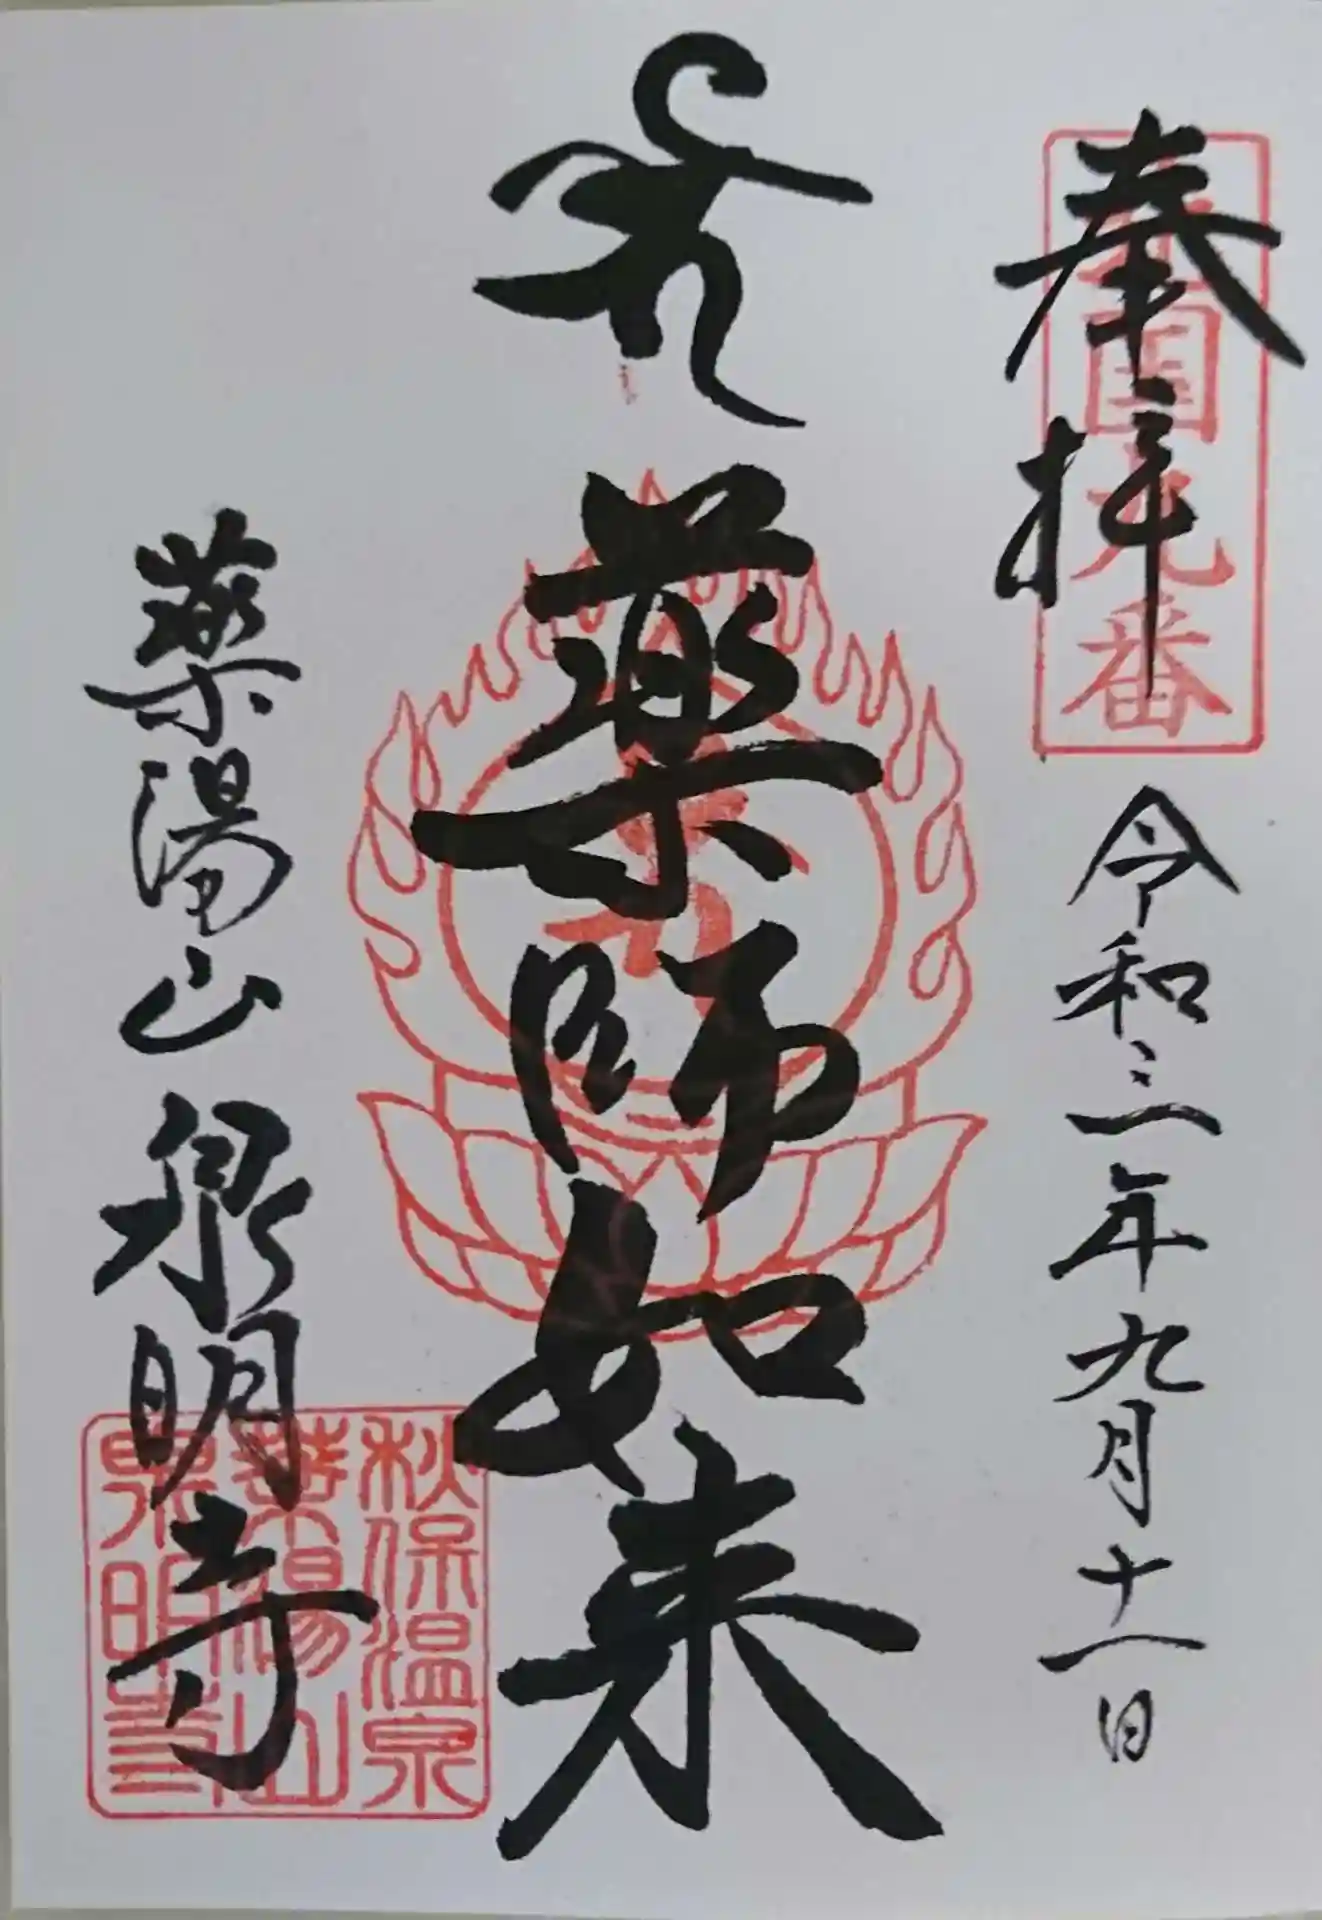 奉拝
令和三年九月十一日
薬師如来
薬湯山 泉明寺
秋保温泉
薬湯山
泉明寺